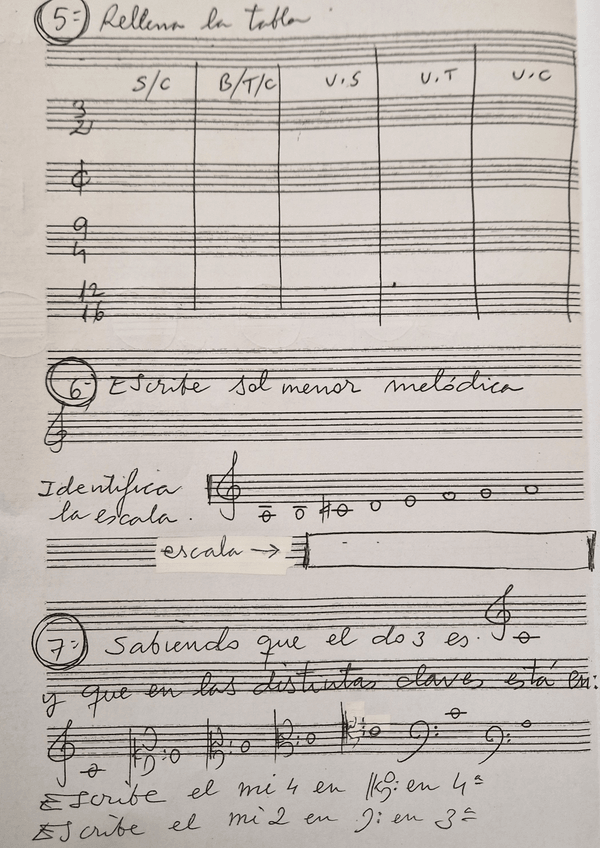 5=) Rellena la tabla
S/C B/T/C U.S U.T U.C
3
2
¢
9
4
12
16
6=) Escribe sol menor melódica
Identifica
la escala.
escala →
7=) Sabiendo que el do3 es.
y que en las distintas claves está en:
Escribe el mi 4 en en 4ª
Escribe el mi 2 en en 3ª